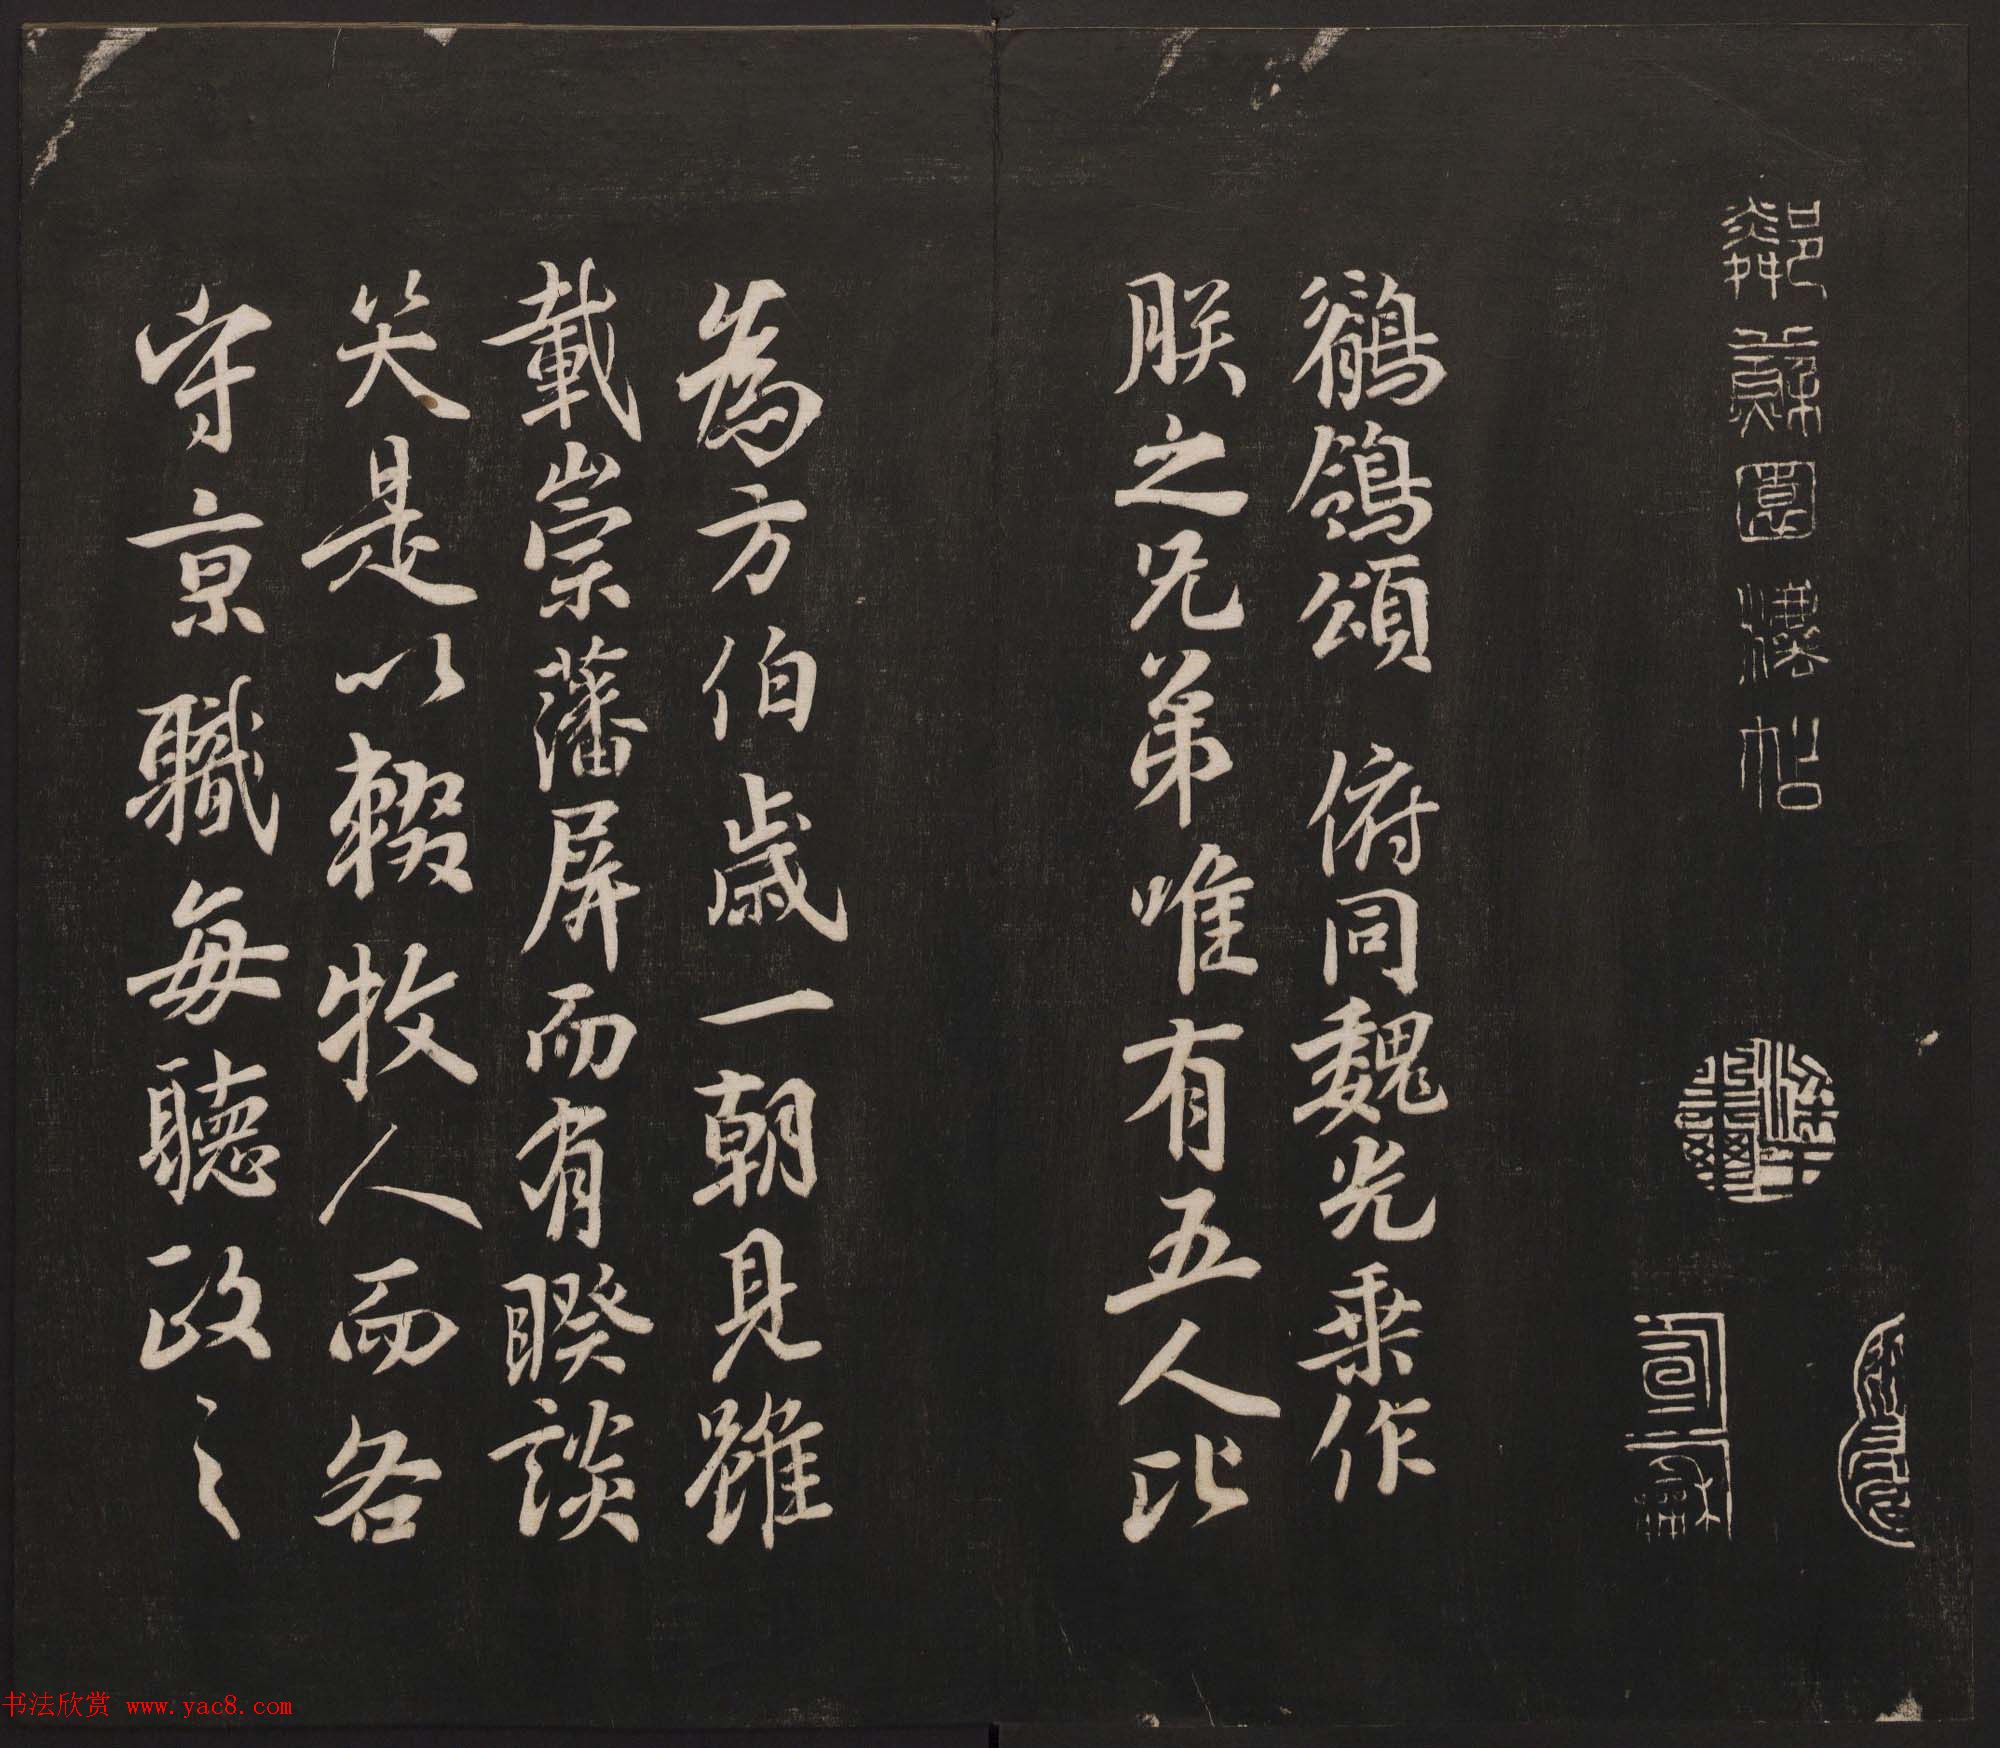 鄰蘇園法帖
鶺鴒頌 俯同魏光乗作
朕之兄弟唯有五人比
為方伯歳一朝見雖
載崇藩屏而有睽談
笑是以輟牧人而各
守京職每聽政之
书法欣赏 www.yac8.com